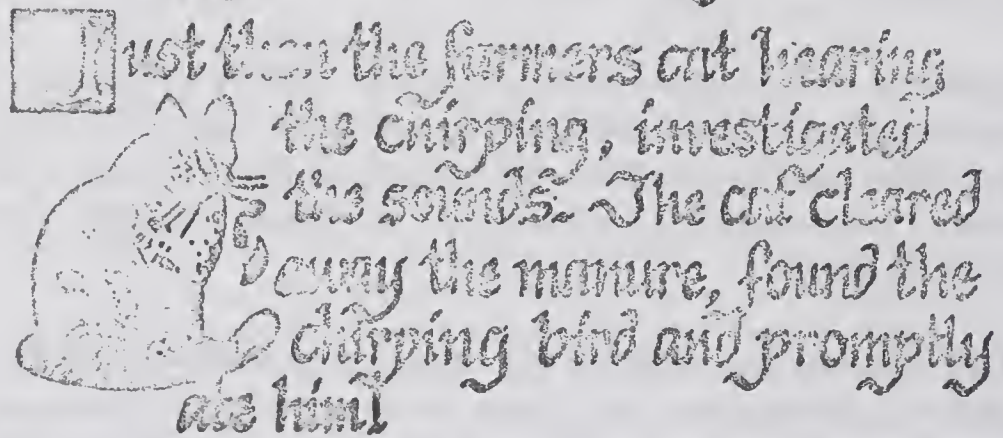 Just then the farmers cat hearing
the chirping, investigated
the sounds. The cat cleared
away the manure, found the
chirping bird and promptly
ate him!